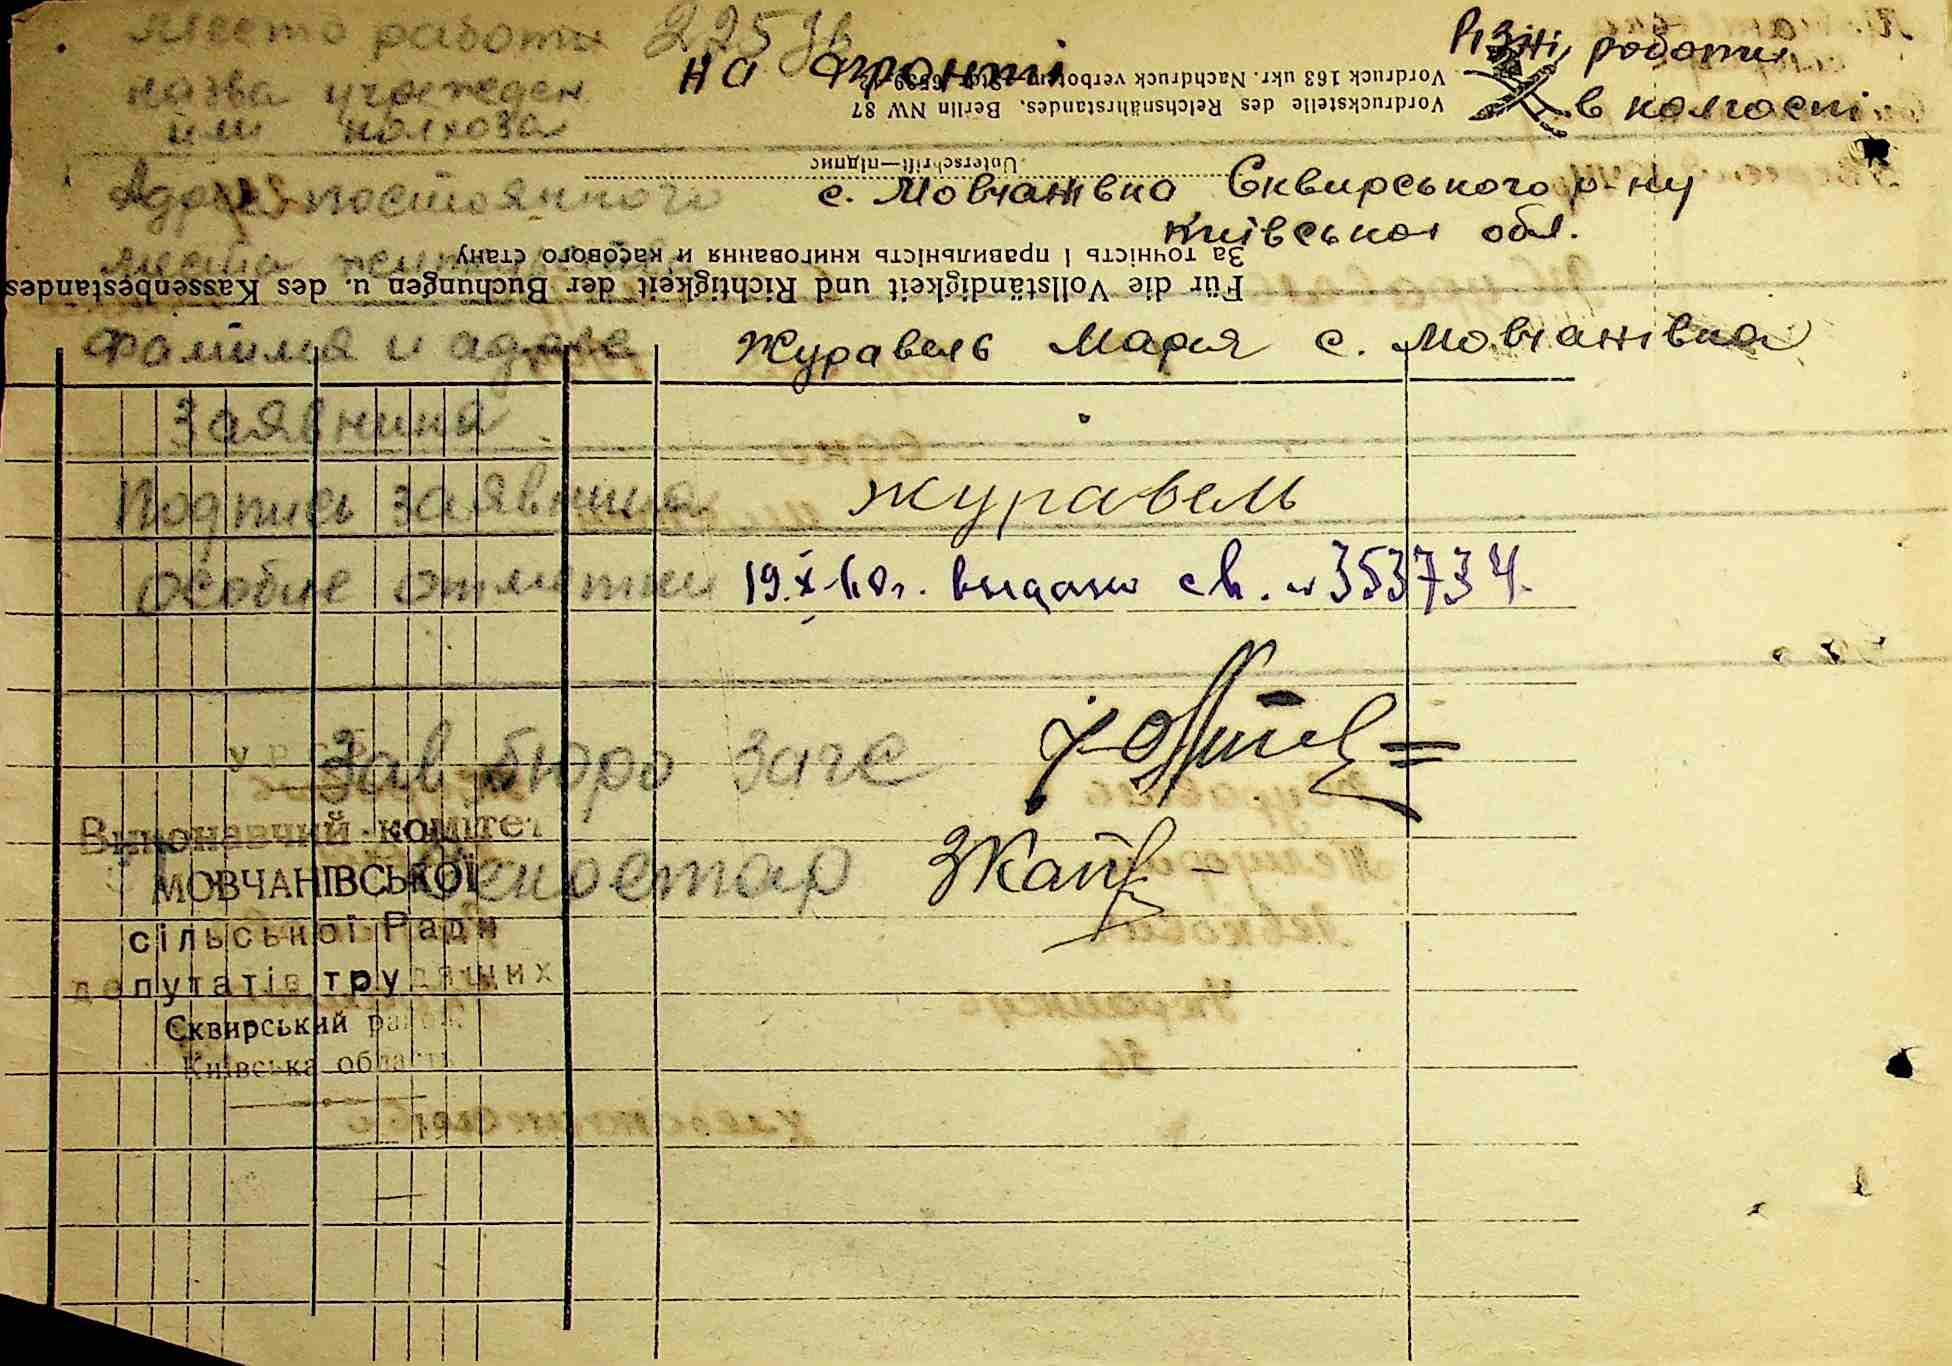 место работи 225
на фронті
Різні роботи
назва учрежден
или колхоза
в колгоспі
Vordruck 163 ukr. Nachdruck verboten
Vordruckstelle des Reichsnährstandes, Berlin NW 87
Unterschrift—підпис
Адрес постоянного
с. Мовчанівка Сквирського р-ну
места
Київської обл.
За точність і правильність книговання и касового стану
Für die Vollständigkeit und Richtigkeit der Buchungen u. des Kassenbestandes
Фамилия и адрес
Журавель Мария с. Мовчанівка
Заявника
Подпись заявника
Журавель
особие отметки
19.X-60г. выдано св. № 353734.
Зав бюро загс
УРСР
Виконавчий комітет
МОВЧАНІВСЬКОЇ
сільської Ради
депутатів трудящих
Сквирський район
Київська область